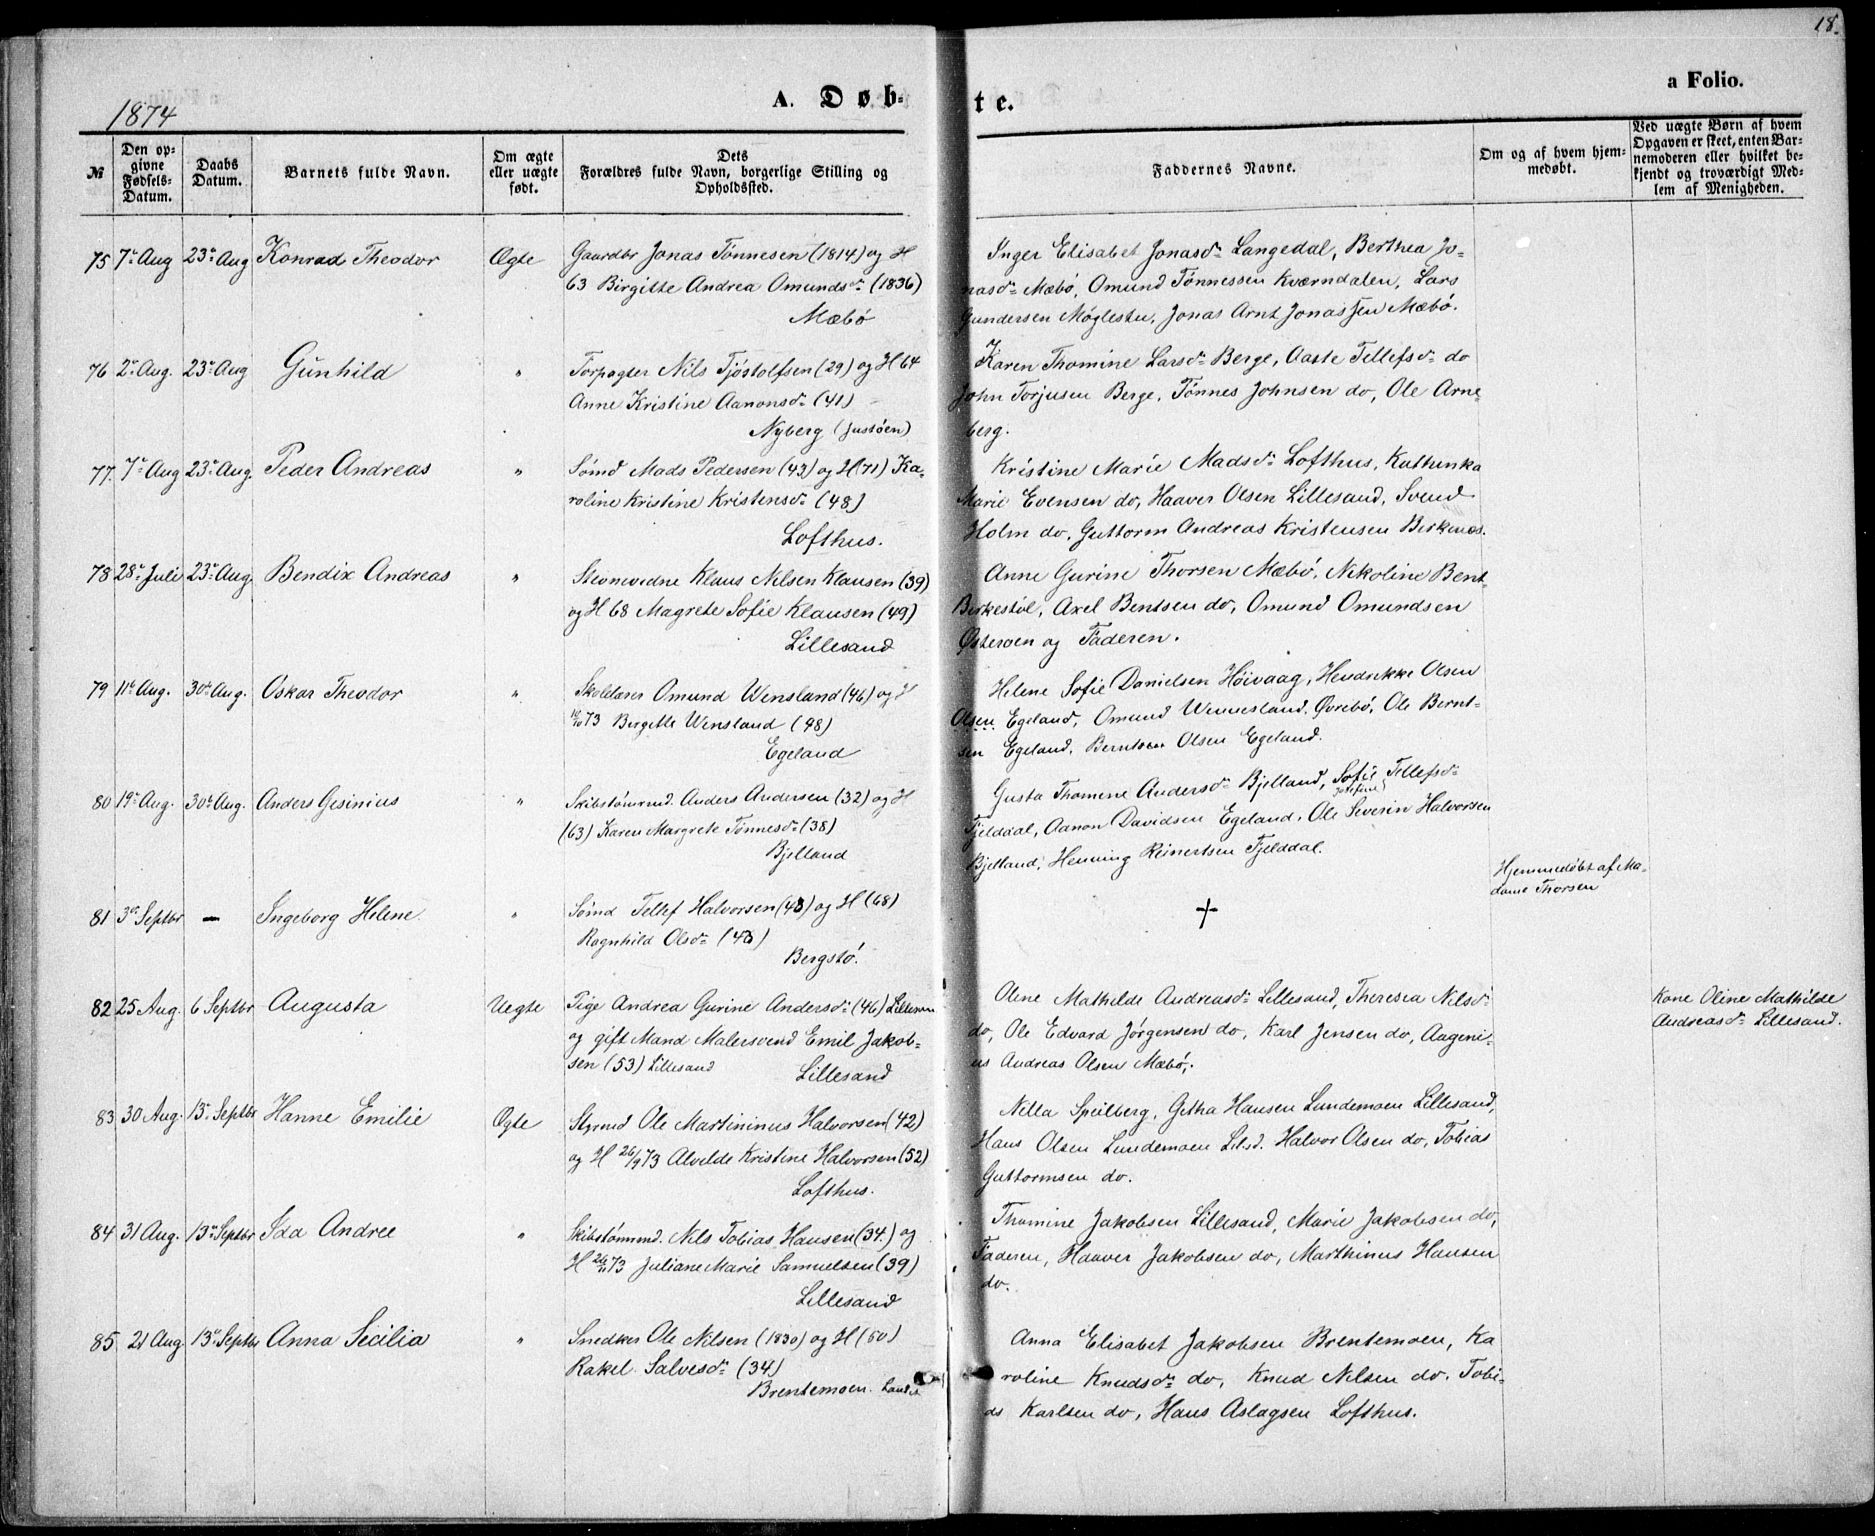 18.
a Folio.
1874
A. Døb-
te.
№
Den op-
givne
Fødsels-
Datum.
Daabs
Datum.
Barnets fulde Navn.
Om ægte
eller uægte
født.
Dets
Forældres fulde Navn, borgerlige Stilling og
Opholdssted.
Faddernes Navne.
Om og af hvem hjem-
medøbt.
Ved uægte Børn af hvem
Opgaven er skeet, enten Bar-
nemoderen eller hvilket be-
kjendt og troværdigt Med-
lem af Menigheden.
75 7de Aug 23de Aug Konrad Theodor Ægte Gaardbr Jonas Tønnesen (1814) og H
63 Birgitte Andrea Omundsdr (1836)
Mæbø
Inger Elisabet Jonasdr Langedal, Berthea Jo-
nasdr Mæbø, Omund Tønnessen Kværndalen, Lars
Gundersen Møglestu, Jonas Arnt Jonassen Mæbø.
76 2de Aug. 23de Aug Gunhild " Torpagter Nils Tjøstolfsen (29) og H 64
Anne Kristine Aanonsdr (41)
Nyberg (Justøen)
Karen Thomine Larsdr Berge, Aaste Tellefsdr do
John Torjusen Berge, Tønnes Johnsen do, Ole Arne-
berg.
77. 7de Aug 23de Aug. Peder Andreas " Sømd Mads Pedersen (43) og H (71) Ka-
roline Kristine Kristensdr (48)
Lofthus.
Kristine Marie Madsdr Lofthus, Kathinka
Marie Evensen do, Haaver Olsen Lillesand, Svend
Holm do, Guttorm Andreas Kristensen Birkenes.
78 28de Juli 23de Aug. Bendix Andreas " Stevnevidne Klaus Nilsen Klausen (39)
og H 68 Magrete Sofie Klausen (49)
Lillesand
Anne Gurine Thorsen Mæbø, Nikoline Bent-
Birkestøl, Axel Bentsen do, Omund Omundsen
Østeroen og Faderen.
79 11te Aug. 30te Aug. Oskar Theodor " Skolelærer Omund Wensland (46) og H
73 Bergitte Wensland (48)
Egeland
Helene Sofie Danielsen Høivaag, Hendrikke Olsen
Olsen Egeland, Omund Wennesland, Øvrebø, Ole Bernt-
sen Egeland, Olsen Egeland.
80 19de Aug. 30te Aug. Anders Gesinius " Skibstømmd. Anders Andersen (32) og H
(63) Karen Margrete Tønnesdr (38)
Bjelland
Gusta Thomene Andersdr Bjelland, Sofie Josefine Tellefsdr
Fjelddal, Aanon Davidsen Egeland, Ole Severin Halvorsen
Bjelland, Henning Reinertsen Fjelddal.
81 3de Septbr – Ingeborg Helene " Sømd Tellef Halvorsen (43) og H (68)
Ragnhild Olsdr (43)
Bergstø.
†
Hjemmedøbt af Ma-
dame Thorsen
82 25 Aug. 6 Septbr Augusta Uegte Pige Andrea Gurine Andersdr (46) Lillesand
og gift Mand Malersvend Emil Jakob-
sen (53) Lillesand
Lillesand
Oline Mathilde Andreasdr Lillesand, Theresia Nilsdr
do, Ole Edvard Jørgensen do, Karl Jensen do, Aageni-
us Andreas Olsen Mæbø.
Kone Oline Mathilde
Andreasdr Lillesand.
83 30 Aug. 13de Septbr Hanne Emilie Ægte Styrmd Ole Martininus Halvorsen (42)
og H 26/9 73 Alvilde Kristine Halvorsen (52)
Lofthus.
Nilla Speilberg, Getha Hansen Lundemoen Lillesand,
Hans Olsen Lundemoen Lilsd. Halvor Olsen do, Tobias
Guttormsen do.
84 31 Aug. 13de Septbr Ida Andree " Skibstømmd. Nils Tobias Hansen (34.) og
H 73 Juliane Marie Samuelsen (39)
Lillesand
Thomine Jakobsen Lillesand, Marie Jakobsen do,
Faderen, Haaver Jakobsen do, Marthinus Hansen
do.
85 21 Aug 13de Septbr Anna Secilia " Snedker Ole Nilsen (1830) og H (60)
Rakel Salvesdr (34)
Brentemoen
Anna Elisabet Jakobsen Brentemoen, Ka
roline Knudsdr do, Knud Nilsen do, Tobi-
as Karlsen do, Hans Aslagsen Lofthus.